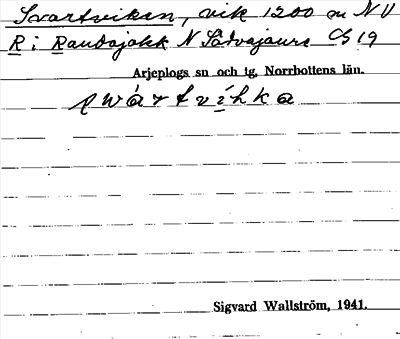 Svartviken, vik 1200 m NV
R i Randajokk N Sädvajaure Cg 19
Arjeplogs sn och tg, Norrbottens län.
swártvíka
Sigvard Wallström, 1941.